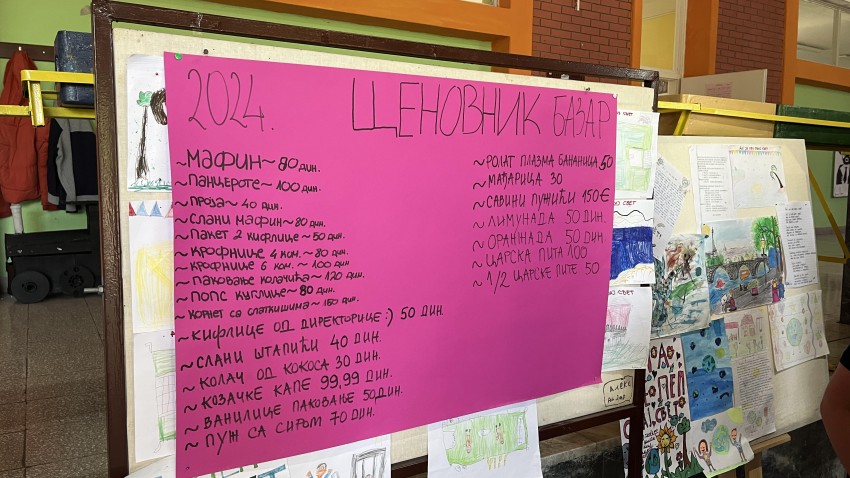 2024.
ЦЕНОВНИК БАЗАР
~МАФИН~80 ДИН.
~ПАНЦЕРОТЕ~100 ДИН.
~ПРОЗА~ 40 ДИН.
~СЛАНИ МАФИН~80 ДИН.
~ПАКЕТ 2 КИФЛИЦЕ~50 ДИН.
~КРОФНИЦЕ 4 КОМ.~80 ДИН.
~КРОФНИЦЕ 6 КОМ.~100 ДИН
~ПАКОВАЊЕ КОЛАЧИЋА~120 ДИН.
~ПОПС КУГЛИЦЕ~80 ДИН.
~КОРНЕТ СА СЛАТКИШИМА~150 ДИН.
~КИФЛИЦЕ ОД ДИРЕКТОРИЦЕ:) 50 ДИН.
~СЛАНИ ШТАПИЋИ 40 ДИН.
~КОЛАЧ ОД КОКОСА 30 ДИН.
~КОЗАЧКЕ КАПЕ 99,99 ДИН.
~ВАНИЛИЦЕ ПАКОВАЊЕ 50 ДИН.
~ПУЖ СА СИРОМ 70 ДИН.
~РОЛАТ ПЛАЗМА БАНАНИЦА 50
~МАЂАРИЦА 30
~САВИНИ ПУЖИЋИ 150€
~ЛИМУНАДА 50 ДИН.
~ОРАНЖАДА 50 ДИН.
~ЦАРСКА ПИТА 100
~1/2 ЦАРСКЕ ПИТЕ 50